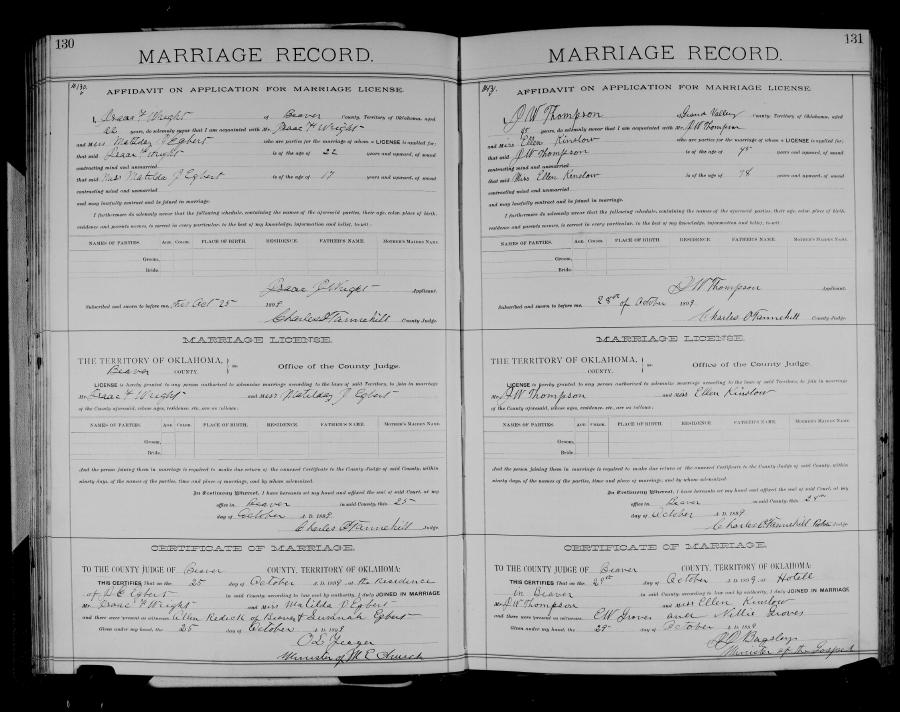 130
MARRIAGE RECORD.
No 130.
AFFIDAVIT ON APPLICATION FOR MARRIAGE LICENSE.
I, Isaac F Wright of Beaver County, Territory of Oklahoma, aged
22 years, do solemnly swear that I am acquainted with Mr. Isaac F Wright
and Miss Matilda J Egbert who are parties for the marriage of whom a LICENSE is applied for;
that said Isaac F Wright is of the age of 22 years and upward, of sound
contracting mind and unmarried
that said Miss Matilda J Egbert is of the age of 17 years and upward, of sound
contracting mind and unmarried
and may lawfully contract and be joined in marriage.
I furthermore do solemnly swear that the following schedule, containing the names of the aforesaid parties, their age, color, place of birth,
residence and parents names, is correct in every particular, to the best of my knowledge, information and belief, to-wit:
NAMES OF PARTIES. AGE. COLOR. PLACE OF BIRTH. RESIDENCE. FATHER'S NAME. MOTHER'S MAIDEN NAME.
Groom,
Bride.
Isaac F Wright Applicant.
Subscribed and sworn to before me, this Oct 25 1899.
Charles O Tannehill County Judge.
MARRIAGE LICENSE.
THE TERRITORY OF OKLAHOMA,
Beaver COUNTY. ss. Office of the County Judge.
LICENSE is hereby granted to any person authorized to solemnize marriage according to the laws of said Territory, to join in marriage
Mr. Isaac F Wright and Miss Matilda J Egbert
of the County aforesaid, whose ages, residence, etc. are as follows:
NAMES OF PARTIES. AGE. COLOR. PLACE OF BIRTH. RESIDENCE. FATHER'S NAME. MOTHER'S MAIDEN NAME.
Groom,
Bride.
And the person joining them in marriage is required to make due return of the annexed Certificate to the County Judge of said County, within
ninety days, of the names of the parties, time and place of marriage, and by whom solemnized.
In Testimony Whereof, I have hereunto set my hand and affixed the seal of said Court, at my
office in Beaver in said County, this 25
day of October A. D. 1899.
Charles O Tannehill Judge.
CERTIFICATE OF MARRIAGE.
TO THE COUNTY JUDGE OF Beaver COUNTY, TERRITORY OF OKLAHOMA:
THIS CERTIFIES That on the 25 day of October A. D. 1899, at the Residence
of D E Egbert in said County, according to law and by authority, I duly JOINED IN MARRIAGE
Mr. Isaac F Wright and Miss Matilda J Egbert
and there were present as witnesses Allen Redick of Beaver & Susanah Egbert
Given under my hand, the 25 day of October A. D. 1899
O L Yeager
Minister of M E Church
131
MARRIAGE RECORD.
No 131.
AFFIDAVIT ON APPLICATION FOR MARRIAGE LICENSE.
I, D W Thompson Grand Valley County, Territory of Oklahoma, aged
45 years, do solemnly swear that I am acquainted with Mr. D W Thompson
and Miss Ellen Kinslow who are parties for the marriage of whom a LICENSE is applied for;
that said D W Thompson is of the age of 45 years and upward, of sound
contracting mind and unmarried
that said Miss Ellen Kinslow is of the age of years and upward, of sound
contracting mind and unmarried
and may lawfully contract and be joined in marriage.
I furthermore do solemnly swear that the following schedule, containing the names of the aforesaid parties, their age, color, place of birth,
residence and parents names, is correct in every particular, to the best of my knowledge, information and belief, to-wit:
NAMES OF PARTIES. AGE. COLOR. PLACE OF BIRTH. RESIDENCE. FATHER'S NAME. MOTHER'S MAIDEN NAME.
Groom,
Bride.
D W Thompson Applicant.
Subscribed and sworn to before me, 28th of October 1899.
Charles O Tannehill County Judge.
MARRIAGE LICENSE.
THE TERRITORY OF OKLAHOMA,
COUNTY. ss. Office of the County Judge.
LICENSE is hereby granted to any person authorized to solemnize marriage according to the laws of said Territory, to join in marriage
Mr. D W Thompson and Miss Ellen Kinslow
of the County aforesaid, whose ages, residence, etc. are as follows:
NAMES OF PARTIES. AGE. COLOR. PLACE OF BIRTH. RESIDENCE. FATHER'S NAME. MOTHER'S MAIDEN NAME.
Groom,
Bride.
And the person joining them in marriage is required to make due return of the annexed Certificate to the County Judge of said County, within
ninety days, of the names of the parties, time and place of marriage, and by whom solemnized.
In Testimony Whereof, I have hereunto set my hand and affixed the seal of said Court, at my
office in Beaver in said County, this 28th
day of October A. D. 1899.
Charles O Tannehill Probate Judge.
CERTIFICATE OF MARRIAGE.
TO THE COUNTY JUDGE OF Beaver COUNTY, TERRITORY OF OKLAHOMA:
THIS CERTIFIES That on the 29th day of October A. D. 1899, at Hotell
in Beaver in said County, according to law and by authority, I duly JOINED IN MARRIAGE
Mr. D W Thompson and Miss Ellen Kinslow
and there were present as witnesses E W Groves and Nillie Groves
Given under my hand, the 29 day of October A. D. 1899
Minister of the Gospel